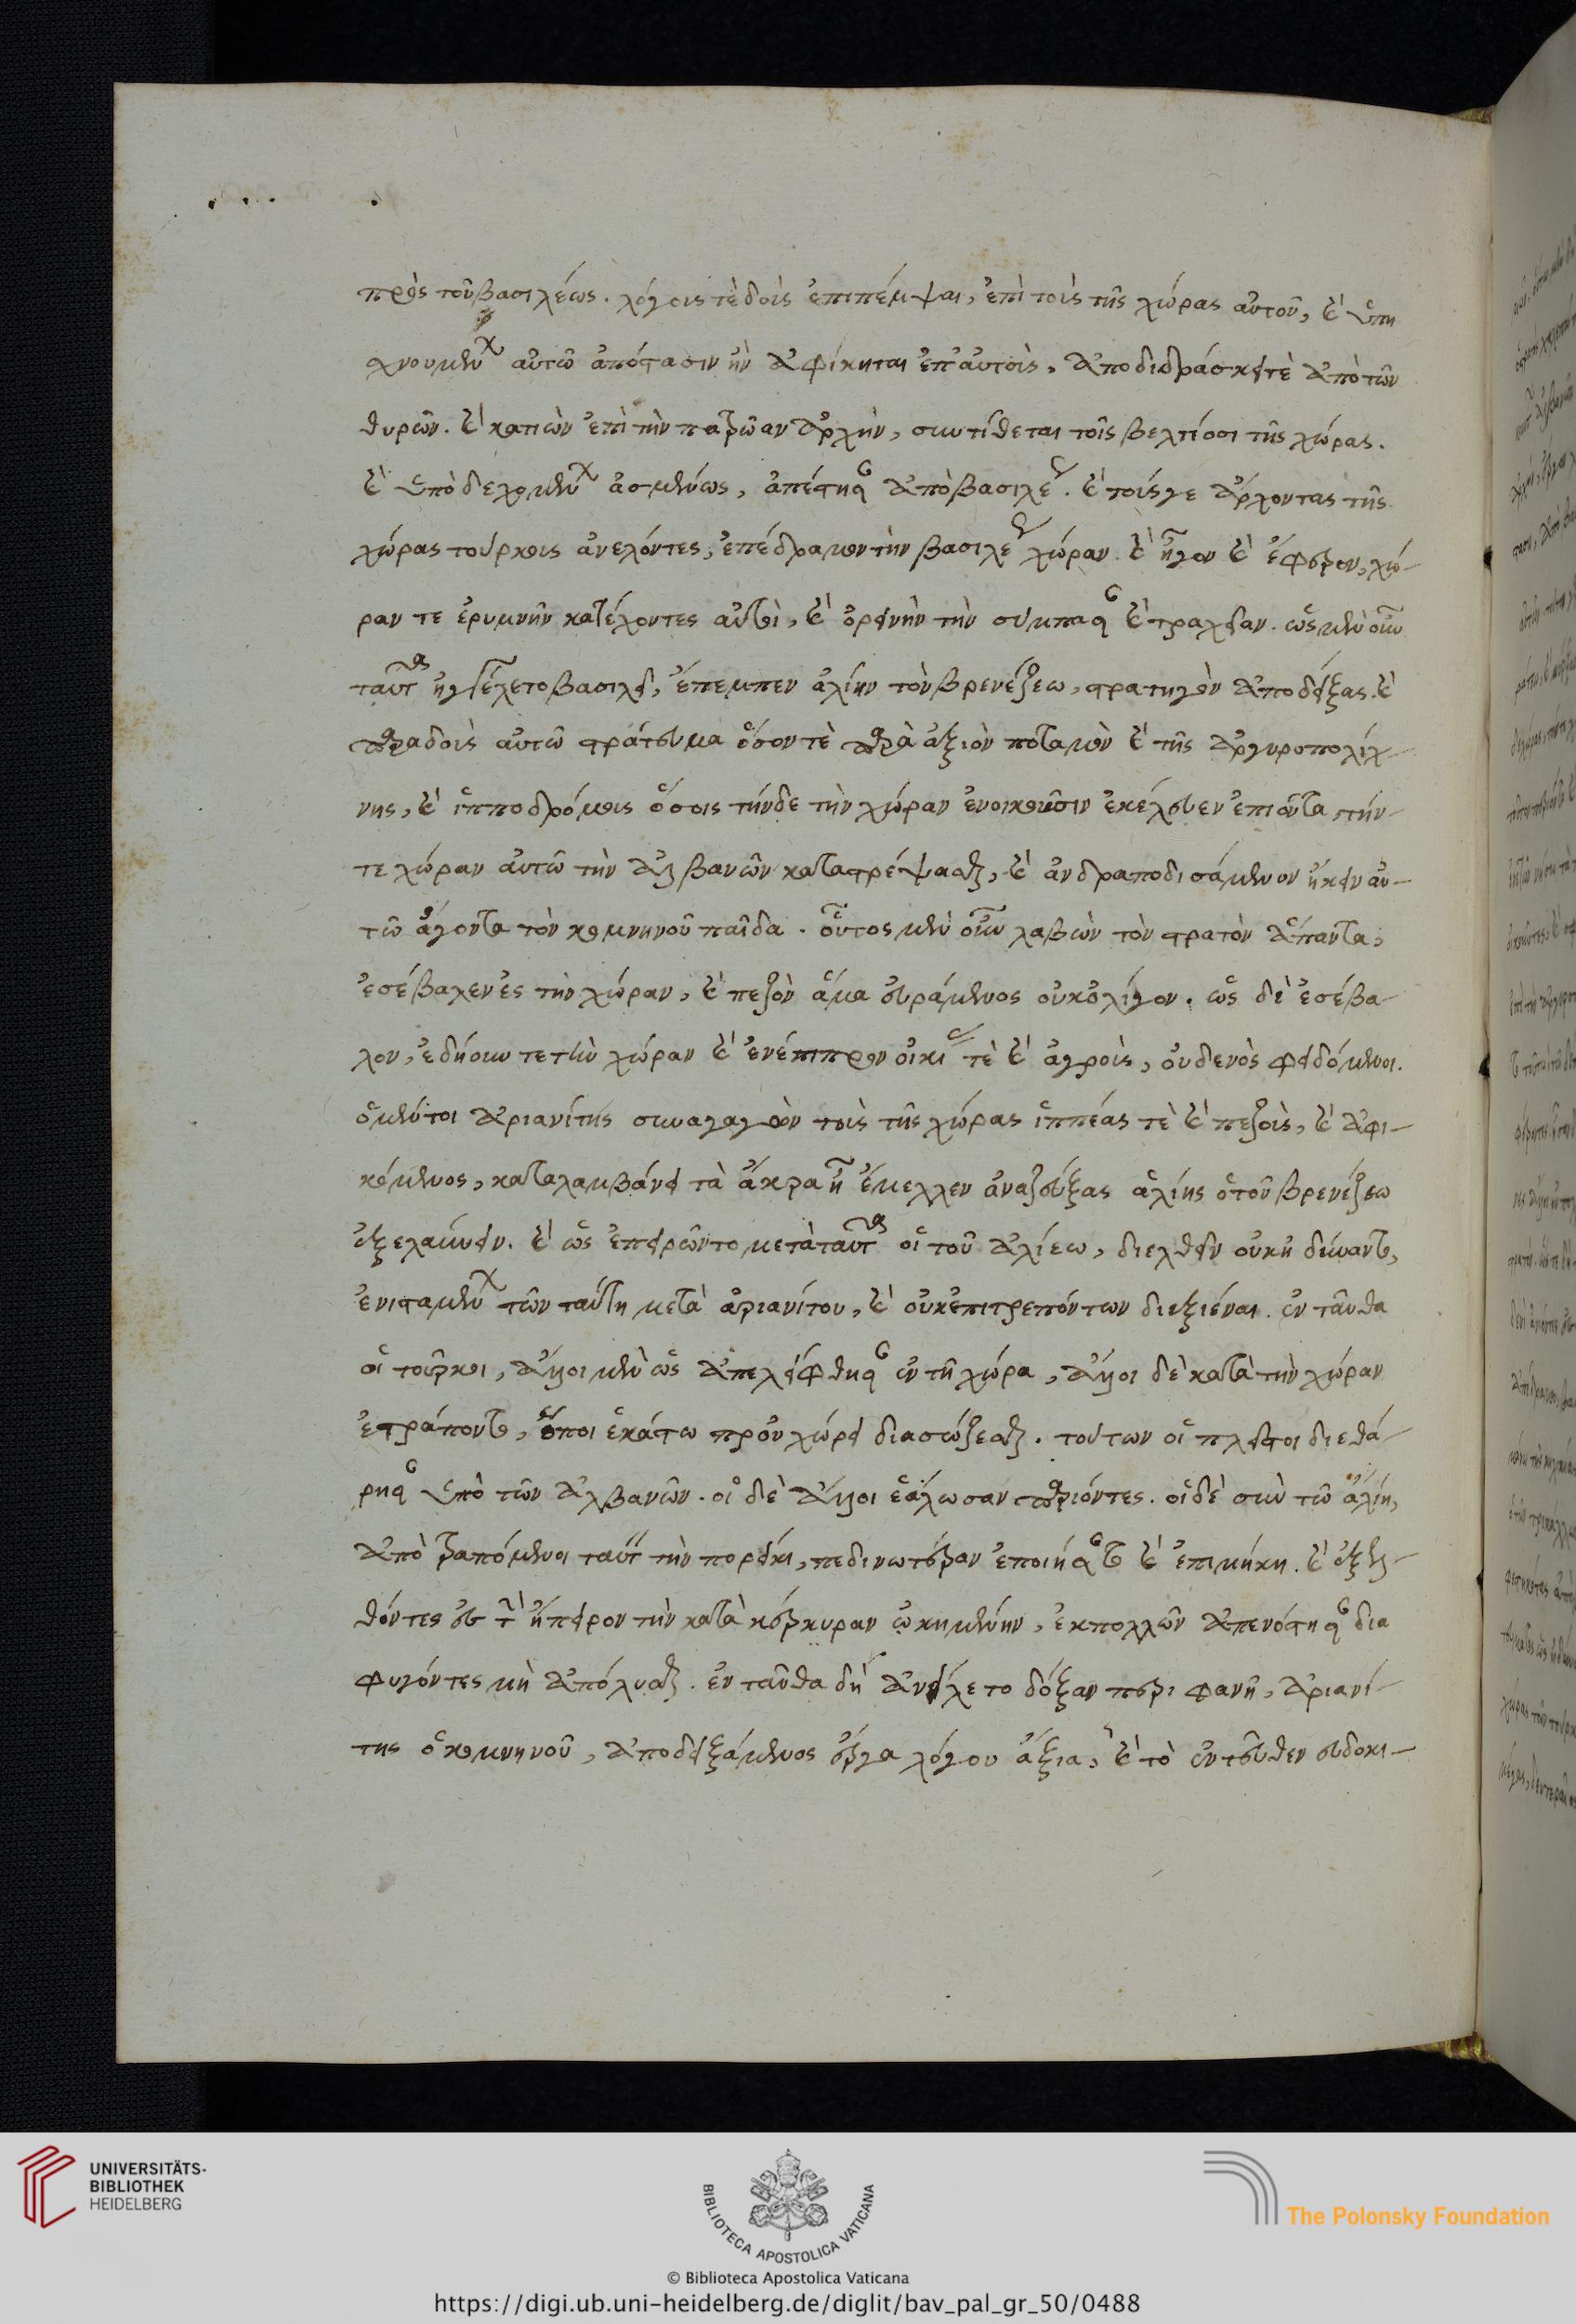 πρὸς τοῦ βασιλέως. λόγοις τὲ δοὺς ἐπιπέμψαι, ἐπὶ τοὺς τῆς χώρας αὐτοῦ, καὶ ὑπι
χνουμένων αὐτῶ ἀπόστασιν ἢν ἀφίκηται ἐπ' αὐτοὺς, ἀποδιδράσκει τὲ ἀπὸ τῶν
θυρῶν. καὶ κατιὼν ἐπὶ τὴν πατρώαν ἀρχὴν, συντίθεται τοῖς βελτίοσι τῆς χώρας.
καὶ ὑποδεχομένων ἀσμένως, ἀπέστησαν ἀπὸ βασιλέως. καὶ τούς γε ἄρχοντας τῆς
χώρας τούρκους ἀνελόντες, ἐπέδραμον τὴν βασιλέως χώραν καὶ ἦγον καὶ ἔφερον, χώ-
ραν τε ἐρυμνὴν κατέχοντες αὐτοὶ, καὶ ὀρεινὴν τὴν σύμπασαν καὶ τραχεῖαν. ὡς μὲν οὖν
ταῦτα ἠγγέλετο βασιλεῖ, ἔπεμπεν ἀλίην τὸν βρενέζεω, στρατηγὸν ἀποδείξας. καὶ
παραδοὺς αὐτῶ στράτευμα ὅσον τὲ παρὰ ἀξιὸν ποταμὸν καὶ τῆς ἀργυροπολίχ-
νης, καὶ ἱπποδρόμους ὅσοις τήνδε τὴν χώραν ἐνοικοῦσιν ἐκέλευεν ἐπιόντα τήν-
τε χώραν αὐτῶ τὴν ἀλβανῶν καταστρέψασθαι, καὶ ἀνδραποδισάμενον ἥκειν αὐ-
τῶ ἄγοντα τὸν κομνηνοῦ παῖδα. οὗτος μὲν οὖν λαβὼν τὸν στρατὸν ἅπαντα,
ἐσέβαλεν ἐς τὴν χώραν, καὶ πεζὸν ἅμα εὑράμενος οὐκ ὀλίγον. ὡς δὲ ἐσέβα-
λον, ἐδήουν τε τὴν χώραν καὶ ἐνέπιπρον οἰκίας τὲ καὶ ἀγροὺς, οὐδενὸς φειδόμενοι.
ὁ μέντοι ἀριανίτης συναγαγὼν τοὺς τῆς χώρας ἱππέας τὲ καὶ πεζοὺς, καὶ ἀφι-
κόμενος, καταλαμβάνει τὰ ἄκρα ἧ ἔμελλεν ἀναζεύξας ἀλίης ὁ τοῦ βρενέζεω
ἐξελαύνειν. καὶ ὡς ἐπειρῶντο μετὰ ταῦτα οἱ τοῦ ἀλίεω, διελθεῖν οὐκ ἠδύναντο,
ἐνισταμένων τῶν ταύτη μετὰ ἀριανίτου, καὶ οὐκ ἐπιτρεπόντων διεξιέναι. ἐνταῦθα
οἱ τοῦρκοι, ἄλλοι μὲν ὡς ἀπελείφθησαν ἐν τῆ χώρα, ἄλλοι δὲ κατὰ τὴν χώραν
ἐτράποντο, ὅποι ἑκάστω προὐχώρει διασώζεσθαι. τούτων οἱ πλεῖστοι διεθά-
ρησαν ὑπὸ τῶν ἀλβανῶν. οἱ δὲ ἄλλοι ἑάλωσαν περιϊόντες. οἱ δὲ σὺν τῶ ἀλίη,
ἀποτραπόμενοι ταύτη τὴν πορείαν, πεδινωτέραν ἐποιήσαντο καὶ ἐπιμήκη. καὶ ἐξελ-
θόντες ἐς τὴν ἤπειρον τὴν κατὰ κέρκυραν ὠκημένην, ἐκ πολλῶν ἀπενόστησαν δια
φυγόντες μὴ ἀπόλυσθαι. ἐνταῦθα δὴ ἀνείλετο δόξαν περιφανῆ, ἀριανί-
της ὁ κομνηνοῦ, ἀποδειξάμενος ἔργα λόγου ἄξια, καὶ τὸ ἐντεῦθεν εὐδοκι-
UNIVERSITÄTS-
BIBLIOTHEK
HEIDELBERG
BIBLIOTECA APOSTOLICA VATICANA
The Polonsky Foundation
© Biblioteca Apostolica Vaticana
https://digi.ub.uni-heidelberg.de/diglit/bav_pal_gr_50/0488